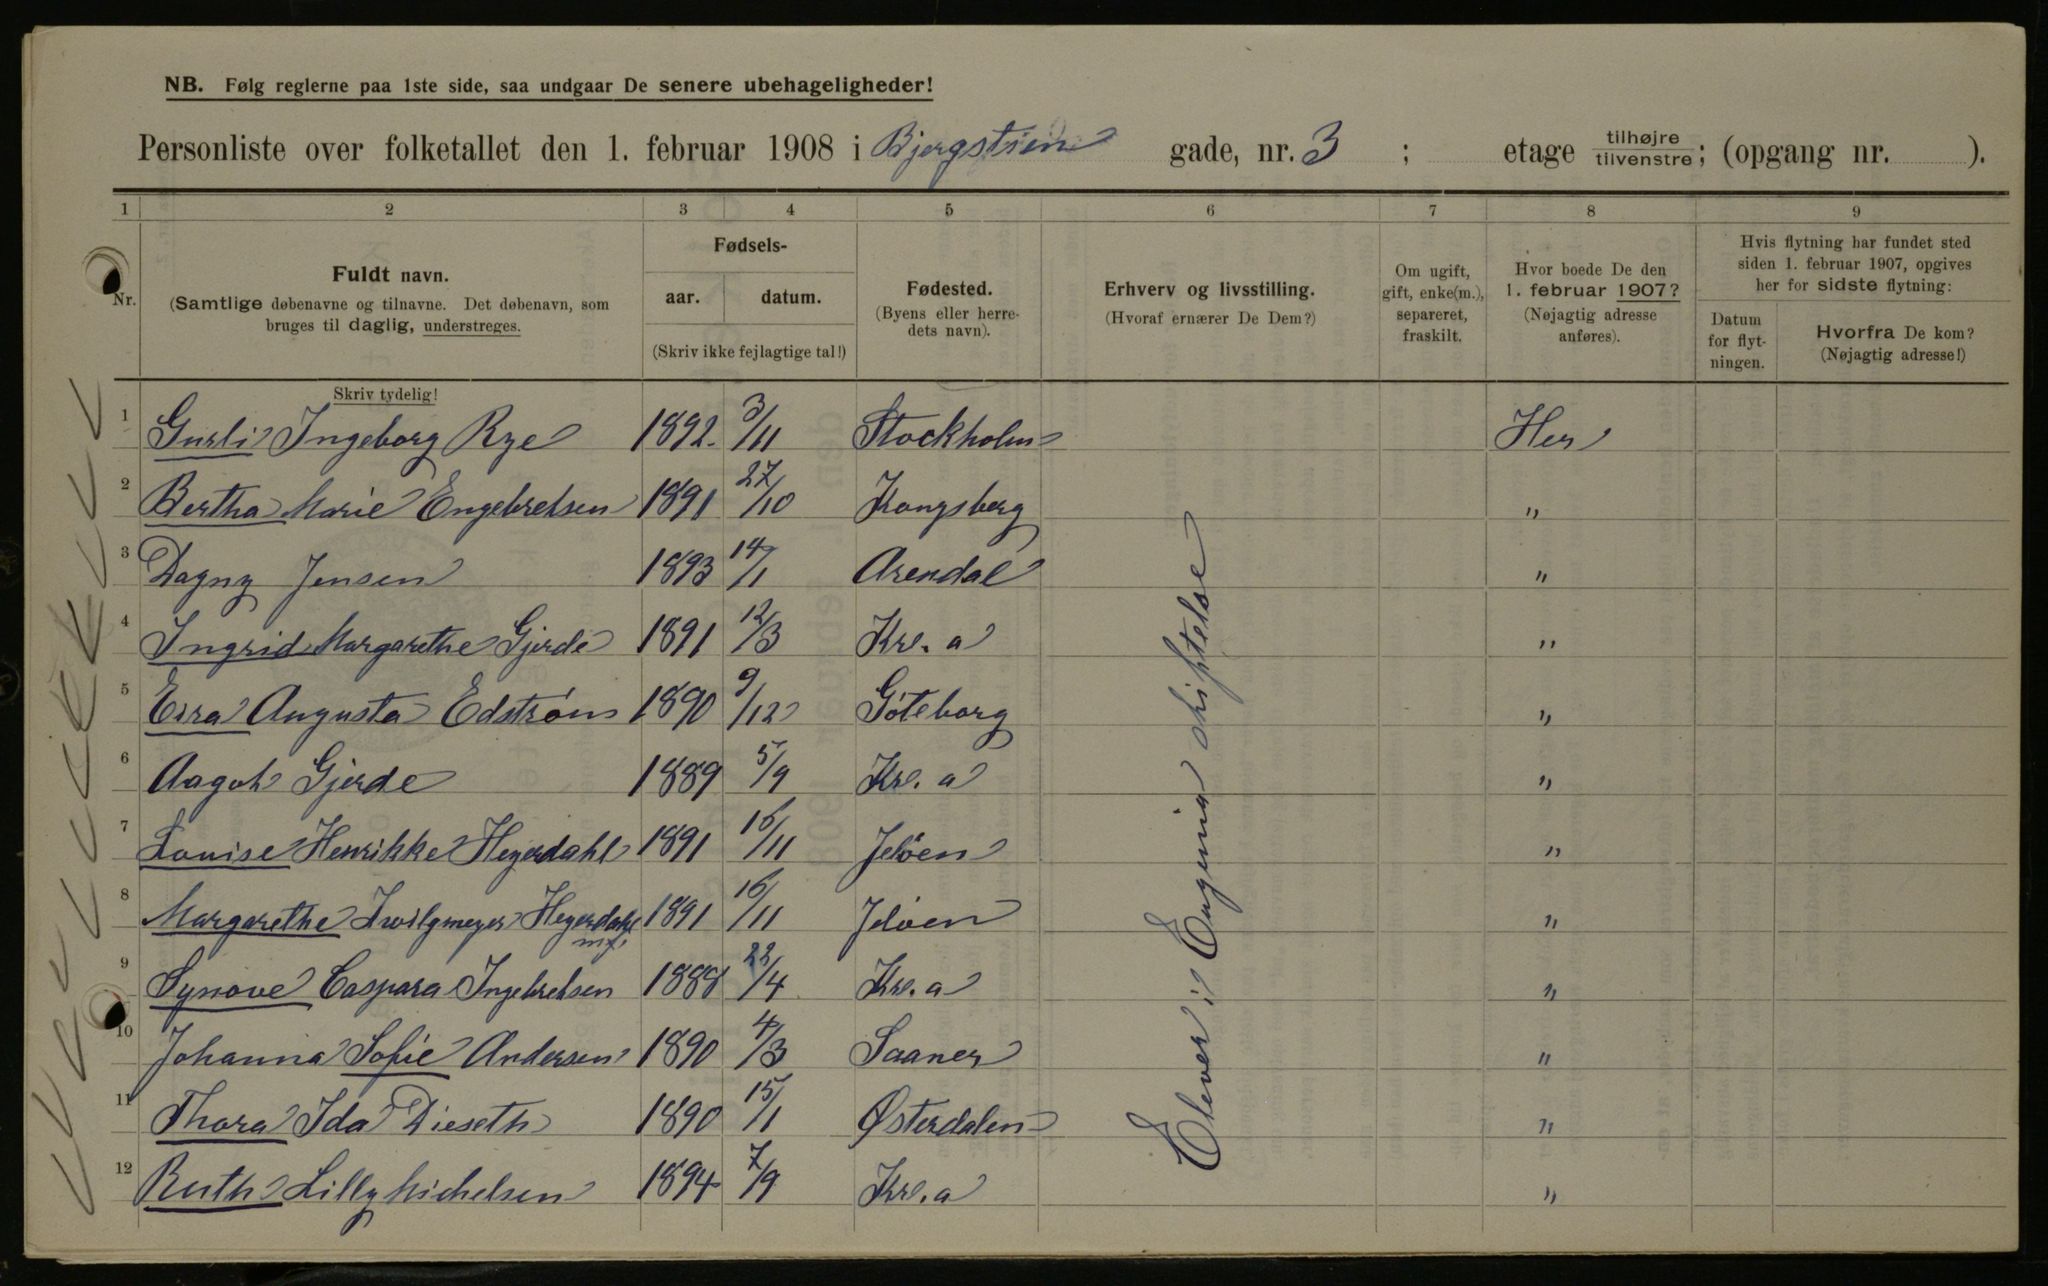 NB. Følg reglerne paa 1ste side, saa undgaar De senere ubehageligheder!
Personliste over folketallet den 1. februar 1908 i Bjergstien gade, nr. 3 ; etage tilhøjre tilvenstre; (opgang nr. ).
1 2 3 4 5 6 7 8 9
Nr.
Fuldt navn.
(Samtlige døbenavne og tilnavne. Det døbenavn, som
bruges til daglig, understreges.
Skriv tydelig!
Fødsels-
aar. datum.
(Skriv ikke fejlagtige tal!)
Fødested.
(Byens eller herre-
dets navn).
Erhverv og livsstilling.
(Hvoraf ernærer De Dem?)
Om ugift,
gift, enke(m.),
separeret,
fraskilt.
Hvor boede De den
1. februar 1907?
(Nøjagtig adresse
anføres).
Hvis flytning har fundet sted
siden 1. februar 1907, opgives
her for sidste flytning:
Datum
for flyt-
ningen.
Hvorfra De kom?
(Nøjagtig adresse!)
1 Gurli Ingeborg Rye 1892 3/11 Stockholm Her
2 Bertha Marie Engebretsen 1891 27/10 Kongsberg "
3 Dagny Jensen 1893 14/1 Arendal "
4 Ingrid Margarethe Gjerde 1891 12/3 Kr. a "
5 Eira Augusta Edstrøm 1890 9/12 Göteborg "
6 Aagot Gjerde 1889 5/9 Kr. a "
7 Louise Henrikke Heyerdahl 1891 16/11 Jeløen "
8 Margarethe Zwilgmeyer Heyerdahl 1891 16/11 Jeløen "
9 Synøve Caspara Ingebretsen 1888 22/4 Kr. a "
10 Johanna Sofie Andersen 1890 4/3 Saaner "
11 Thora Ida Dieseth 1890 15/1 Østerdalen "
12 Ruth Lilly Michelsen 1894 7/9 Kr. a "
Elever i Eugenia stiftelse